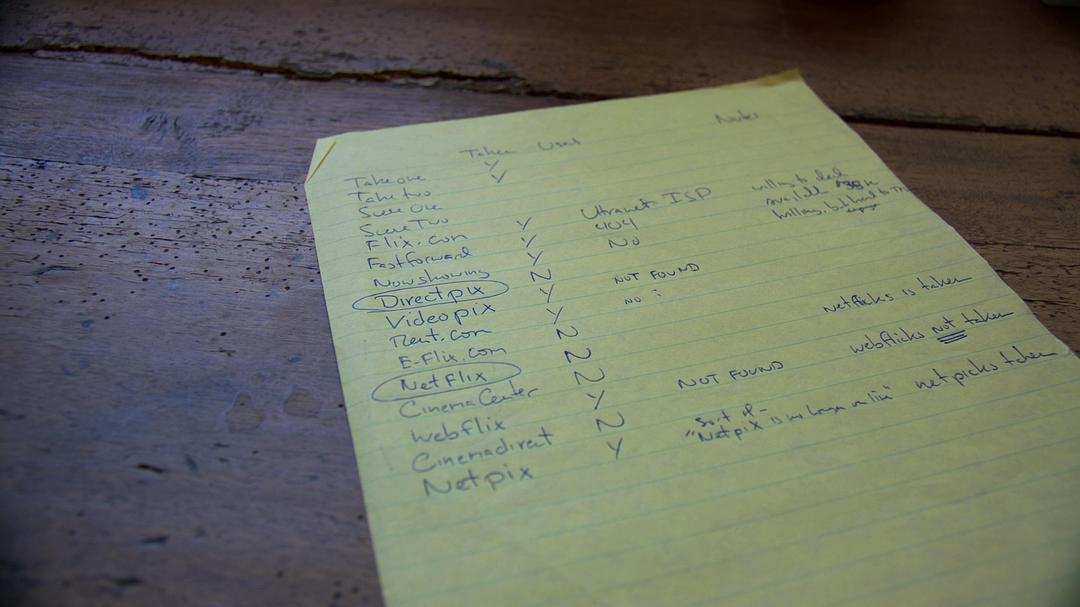 Taken Used Notes
Take one Y
Take two Y
Scene One
Scene Two
Flix.com Y Utranet ISP willing to deal
FastForward Y 404 available
Nowshowing Y No
Directpix N NOT FOUND
Videopix Y no
Rent.com Y
E-Flix.com N
NetFlix N netflicks is taken
CinemaCenter N
webflix Y webflicks not taken
Cinemadirect N NOT FOUND
Netpix Y Sort of - "Netpix is no longer on line" netpicks taken